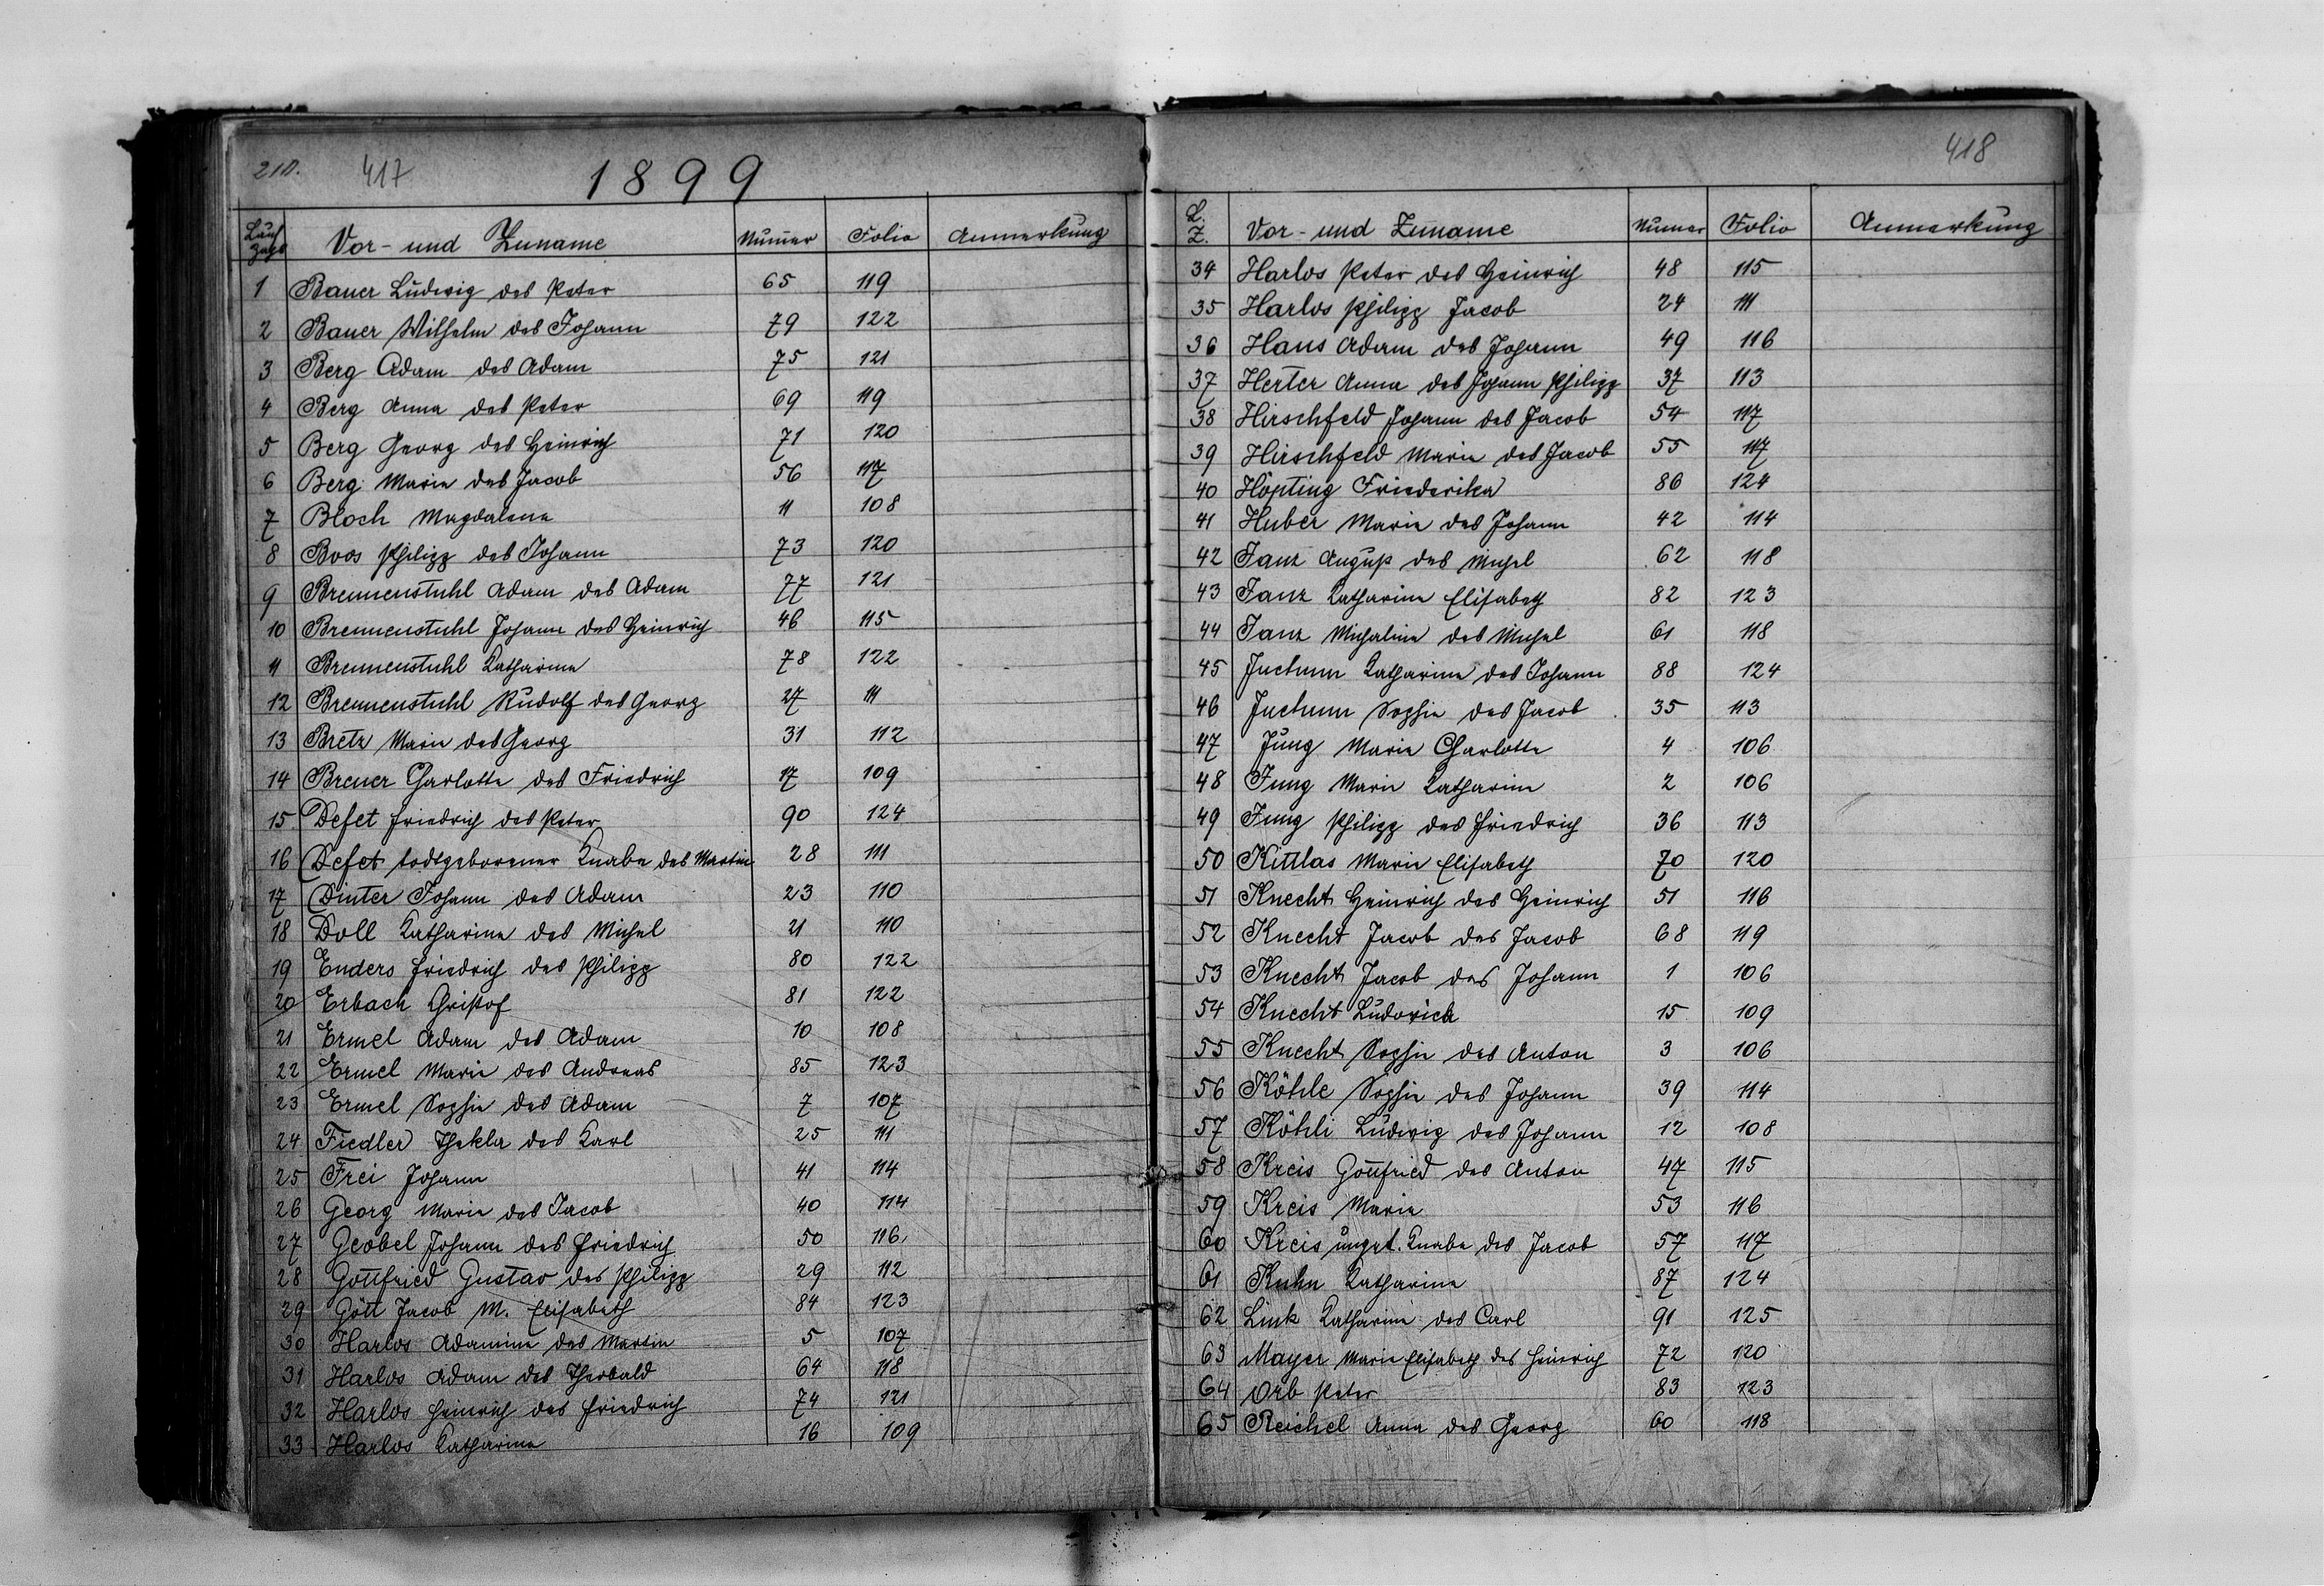 210. 417
1899
Lauf Zahl Vor- und Zuname Numer Folio Anmerkung
1 Bauer Ludwig des Peter 65 119
2 Bauer Wilhelm des Johann 79 122
3 Berg Adam des Adam 75 121
4 Berg Anna des Peter 69 119
5 Berg Georg des Heinrich 71 120
6 Berg Marie des Jacob 56 117
7 Bloch Magdalena 11 108
8 Boos Philipp des Johann 73 120
9 Brennenstuhl Adam des Adam 77 121
10 Brennenstuhl Johann des Heinrich 46 115
11 Brennenstuhl Katharina 78 122
12 Brennenstuhl Rudolf des Georg 27 111
13 Bretz Marie des Georg 31 112
14 Breuer Charlotte des Friedrich 17 109
15 Defet Friedrich des Peter 90 124
16 Defet todtgeborener Knabe des Martin 28 111
17 Dinter Johann des Adam 23 110
18 Doll Katharina des Michel 21 110
19 Enders Friedrich des Philipp 80 122
20 Erbach Christof 81 122
21 Ermel Adam des Adam 10 108
22 Ermel Marie des Andreas 85 123
23 Ermel Sophie des Adam 7 107
24 Fiedler Thekla des Karl 25 111
25 Frei Johann 41 114
26 Georg Marie des Jacob 40 114
27 Geobel Johann des Friedrich 50 116
28 Gottfried Gustav des Philipp 29 112
29 Gött Jacob M. Elisabeth 84 123
30 Harlos Adamine des Martin 5 107
31 Harlos Adam des Theobald 64 118
32 Harlos Heinrich des Friedrich 74 121
33 Harlos Katharina 16 109
418
L. Z. Vor- und Zuname Numer Folio Anmerkung
34 Harlos Peter des Heinrich 48 115
35 Harlos Philipp Jacob 24 111
36 Haus Adam des Johann 49 116
37 Herter Anna des Johann Philipp 37 113
38 Hirschfeld Johann des Jacob 54 117
39 Hirschfeld Marie des Jacob 55 117
40 Hopting Friederika 86 124
41 Huber Marie des Johann 42 114
42 Janz August des Michel 62 118
43 Janz Katharina Elisabeth 82 123
44 Janz Michaline des Michel 61 118
45 Juchum Katharina des Johann 88 124
46 Juchum Sophie des Jacob 35 113
47 Jung Marie Charlotte 4 106
48 Jung Marie Katharina 2 106
49 Jung Philipp des Friedrich 36 113
50 Kittlas Marie Elisabeth 70 120
51 Knecht Heinrich des Heinrich 51 116
52 Knecht Jacob des Jacob 68 119
53 Knecht Jacob des Johann 1 106
54 Knecht Ludovica 15 109
55 Knecht Sophie des Anton 3 106
56 Köhle Sophie des Johann 39 114
57 Köhli Ludwig des Johann 12 108
58 Kreis Gottfried des Anton 47 115
59 Kreis Marie 53 116
60 Kreis unget. Knabe des Jacob 57 117
61 Kuhn Katharina 87 124
62 Link Katharina des Carl 91 125
63 Mayer Marie Elisabeth des Heinrich 72 120
64 Orb Peter 83 123
65 Reichel Anna des Georg 60 118